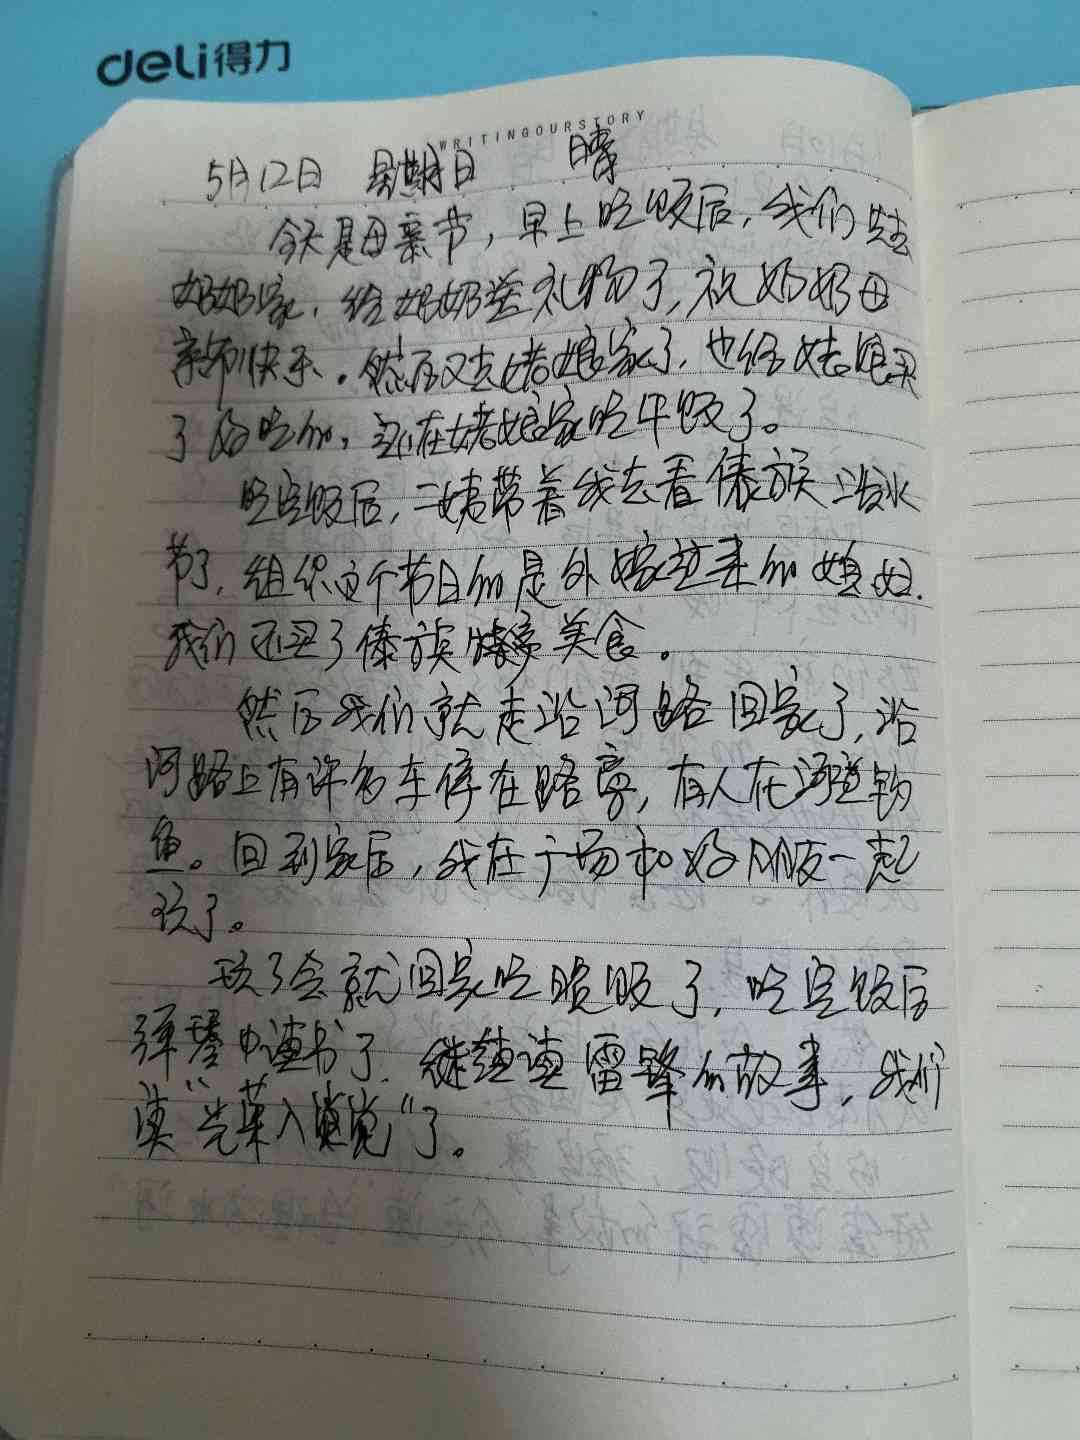 deli得力
WRITINGOURSTORY
5月12日 星期日 晴
今天是母亲节，早上吃饭后，我们先去
奶奶家，给奶奶送礼物了，祝奶奶母
亲节快乐。然后又去姥娘家了，也给姥娘买
了好吃的，就在姥娘家吃午饭了。
吃完饭后，二姨带着我去看傣族泼水
节了，组织这个节日的是外嫁过来的媳妇.
我们还买了傣族特产美食。
然后我们就走沿河路回家了，沿
河路上有许多车停在路旁，有人在河边钓
鱼。回到家后，我在广场和好朋友一起
玩了。
玩了会就回家吃晚饭了，吃完饭后
弹琴 读书了，继续读雷锋的故事，我们
读“光荣入党”了。